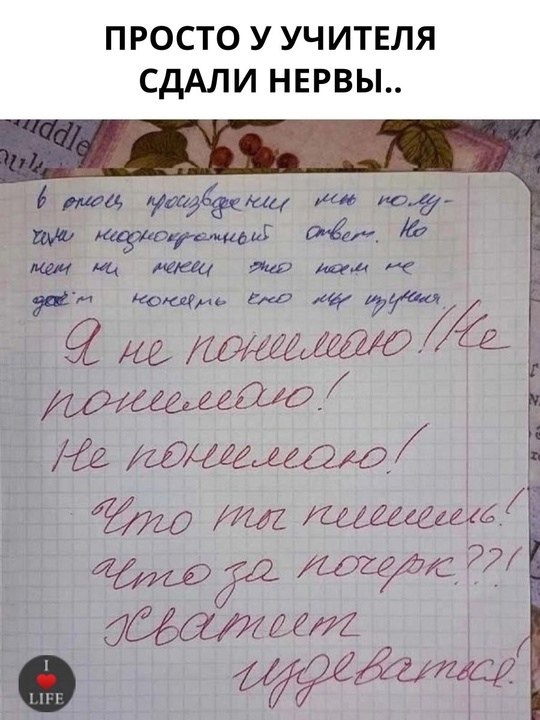 ПРОСТО У УЧИТЕЛЯ
СДАЛИ НЕРВЫ..
ddle
в этом произведении мы полу-
чили неоднократный ответ. Но
тем ни мене это нам не
даёт понять кто мы изучили
Я не понимаю!!Не
понимаю!
Не понимаю!
Что ты пишешь!
Что за почерк??!
Хватит
издеваться!
I
LIFE